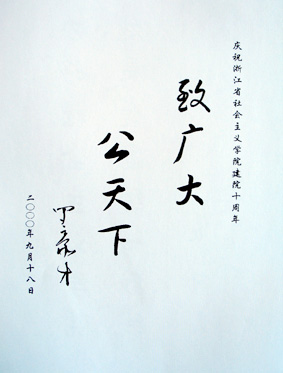 庆祝浙江省社会主义学院建院十周年
致广大
公天下
罗豪才
二〇〇〇年九月十八日